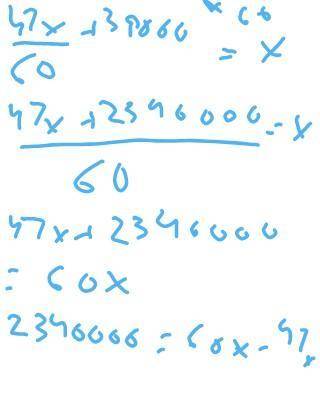 47x + 39000 x 60
60 = x
47x + 2340000 = x
60
47x + 2340000
= 60x
2340000 = 60x - 47x